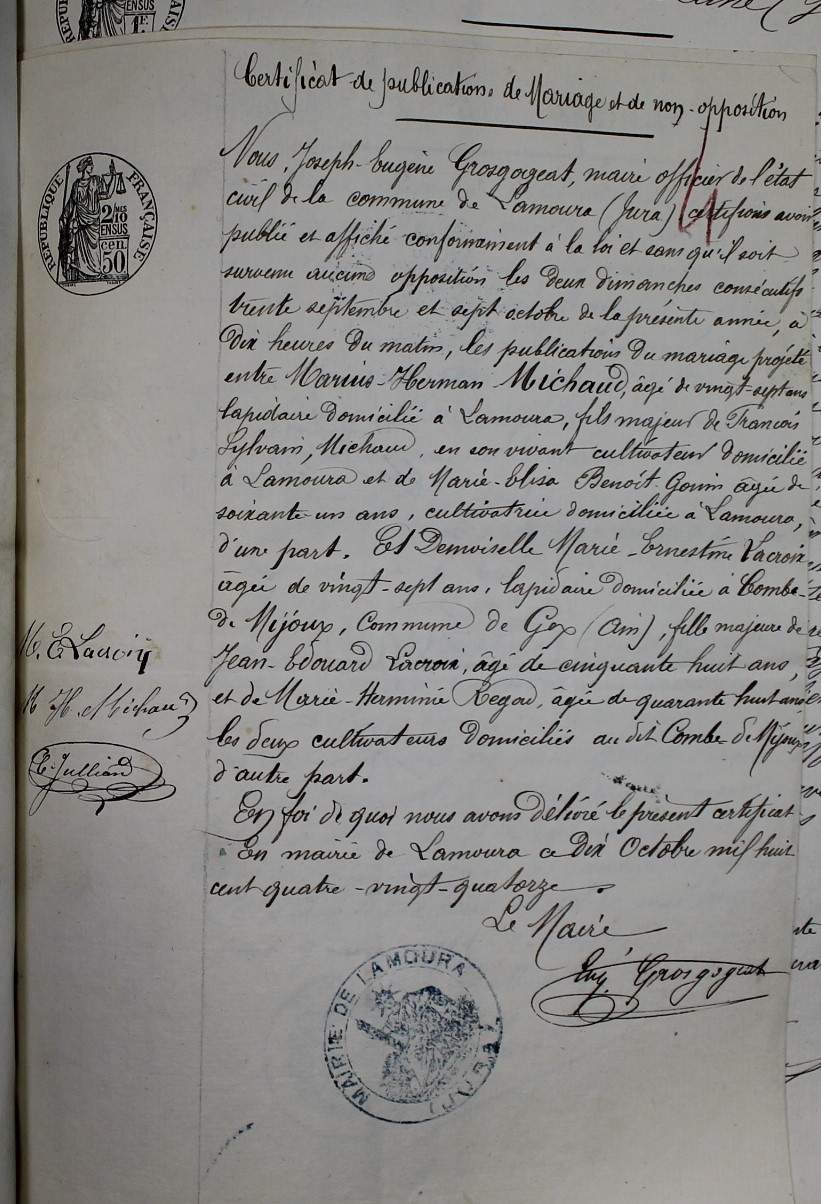 Certificat de publications de Mariage et de non-opposition
Nous, Joseph-Eugène Grosgogeat, maire officier de l'état
civil de la commune de Lamoura (Jura) certifions avoir
publié et affiché conformément à la loi et sans qu'il soit
survenu aucune opposition les deux dimanches consécutifs
trente septembre et sept octobre de la présente année, à
dix heures du matin, les publications du mariage projeté
entre Marius-Herman-Michaud, âgé de vingt-sept ans
lapidaire domicilié à Lamoura, fils majeur de François
Sylvain, Michaud, en son vivant cultivateur domicilié
à Lamoura et de Marie-Elisa Benoit-Gonin âgée de
soixante un ans, cultivatrice domiciliée à Lamoura,
d'une part. Et Demoiselle Marie-Ernestine Lacroix
âgée de vingt-sept ans, lapidaire domiciliée à Combe-
de Mijoux, Commune de Gex (Ain), fille majeure de
Jean-Edouard Lacroix, âgé de cinquante huit ans,
et de Marie-Herminie Regad, âgée de quarante huit ans
les deux cultivateurs domiciliés au dit Combe-de Mijoux
d'autre part.
En foi de quoi nous avons délivré le présent certificat
En mairie de Lamoura ce dix Octobre mil huit
cent quatre-vingt-quatorze.
Le Maire
Eug. Grosgogeat
M. E. Lacroix
M. H. Michaud
E. Julliand
RÉPUBLIQUE FRANÇAISE
2/10
EN SUS
50 cen
MAIRIE DE LAMOURA
(JURA)